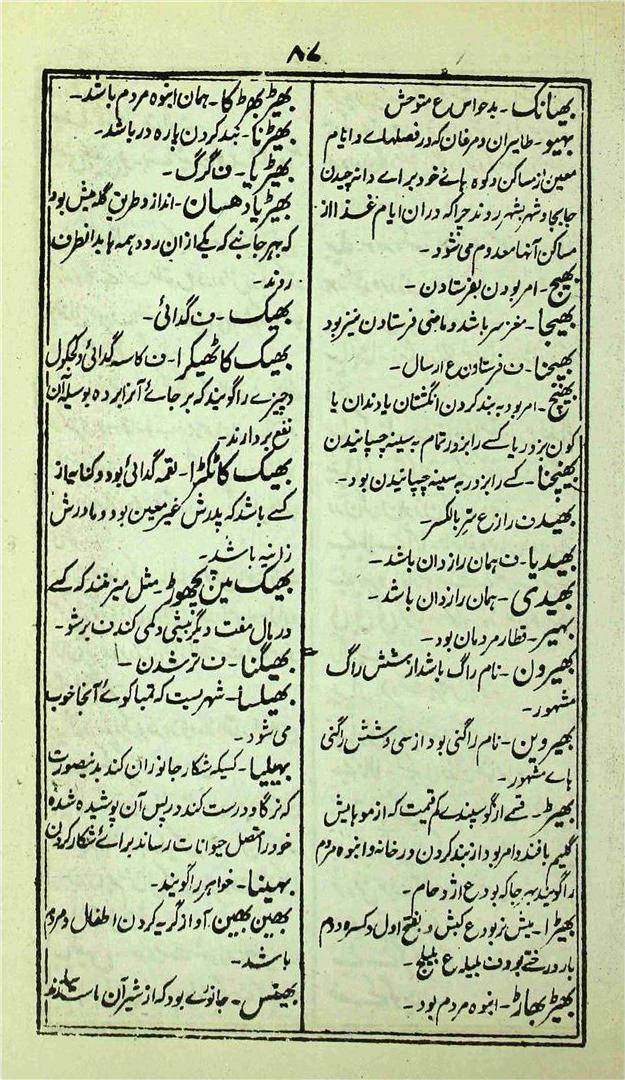 ۸۷
بھیانک - بدحواس ع متوحش
بھیو - طایران و مرغان که در فصلهاے و ایام
معین از مساکن و کوه ہاے خود براے دانه چیدن
جابجا و شهر بشهر روند چرا که دران ایام غذا از
مساکن آنها معدوم می شود -
بھیج - امر بودن بفرستادن -
بھیجا - مغز سر باشد و ماضی فرستادن نیز بود
بھیجنا - ف فرستادن ع ارسال -
بھینچ - امر بود به بند کردن انگشتان یا دندان یا
کون بزور یا کسے را بزور تمام به سینه چسپانیدن
بھینچنا - کسے را بزور به سینه چسپانیدن بود -
بھید ف راز ع سر بالکسر -
بھیدیا - ف همان رازدان باشد -
بھیدی - همان رازدان باشد -
بہیر - قطار مردمان بود -
بھیرون - نام راگ باشد از شش راگ
مشهور -
بھیروین - نام راگنی بود از سی و شش راگنی
ہاے مشهور -
بھیڑ - قسمے از گوسپندے کم قیمت که از موہایش
گلیم بافند و امر بود از بند کردن در خانه و انبوه مردم
را گویند بہر جا که بود ع ازدحام -
بھیڑا - میش نر بود ع کبش و بفتح اول و کسره دوم
بار درختے بود ف بلیله ع بلیلج -
بھیڑ بھاڑ - انبوه مردم بود -
بھیڑ بھڑکا - همان انبوه مردم باشد -
بھیڑنا - بند کردن پاره در باشد -
بھیڑیا - ف گرگ -
بھیڑیا دھسان - انداز و طریق گله میش بود
که بہر جانبے که یکے ازان رود همه ها بدانطرف
روند -
بھیک - ف گدائی -
بھیک کا ٹھیکرا - ف کاسه گدائی و کجکول
و چیزے را گویند که بر جاے آنرا برده بوسیله آن
نفع بردارند -
بھیک کا ٹکڑا - لقمه گدائی بود و کنایه از
کسے باشد که پدرش غیر معین بود و مادرش
زانیه باشد -
بھیک مین پچھوڑ - مثل میزنند که کسے
در مال مفت دیگر بیشی و کمی کند ف برشو -
بھیگنا - ف تر شدن -
بھیلسا - شهریست که تمباکوے آنجا خوب
می شود -
بہیلیا - کسیکه شکار جانوران کند بدینصورت
که نر گاو درست کند در پس آن پوشیده شده
خود را متصل حیوانات رساند براے شکار کردن
بہینا - خواهر را گویند -
بھین بھین - آواز گریه کردن اطفال و مردم
باشد -
بھینس - جانورے بود که از شیر آن ماست